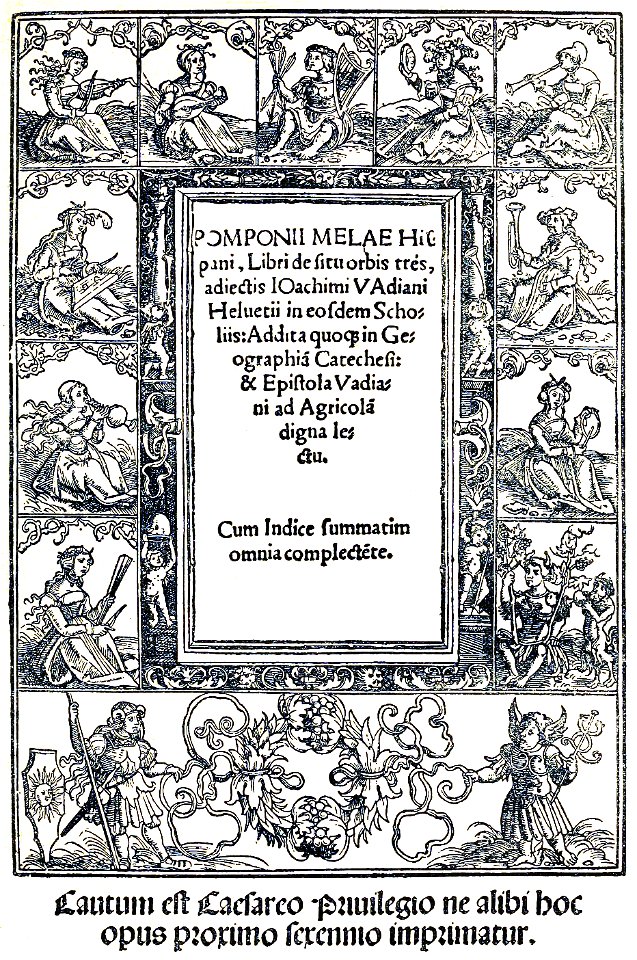 POMPONII MELAE Hiſ
pani, Libri de ſitu orbis tres,
adiectis IOachimi VAdiani
Heluetii in eoſdem Scho⸗
liis: Addita quoqꝫ in Ge⸗
ographiã Catecheſi:
& Epiſtola Vadia⸗
ni ad Agricolã
digna le⸗
ctu.
Cum Indice ſummatim
omnia complectẽte.
Cautum eſt Caeſareo Priuilegio ne alibi hoc
opus proximo ſexennio imprimatur.